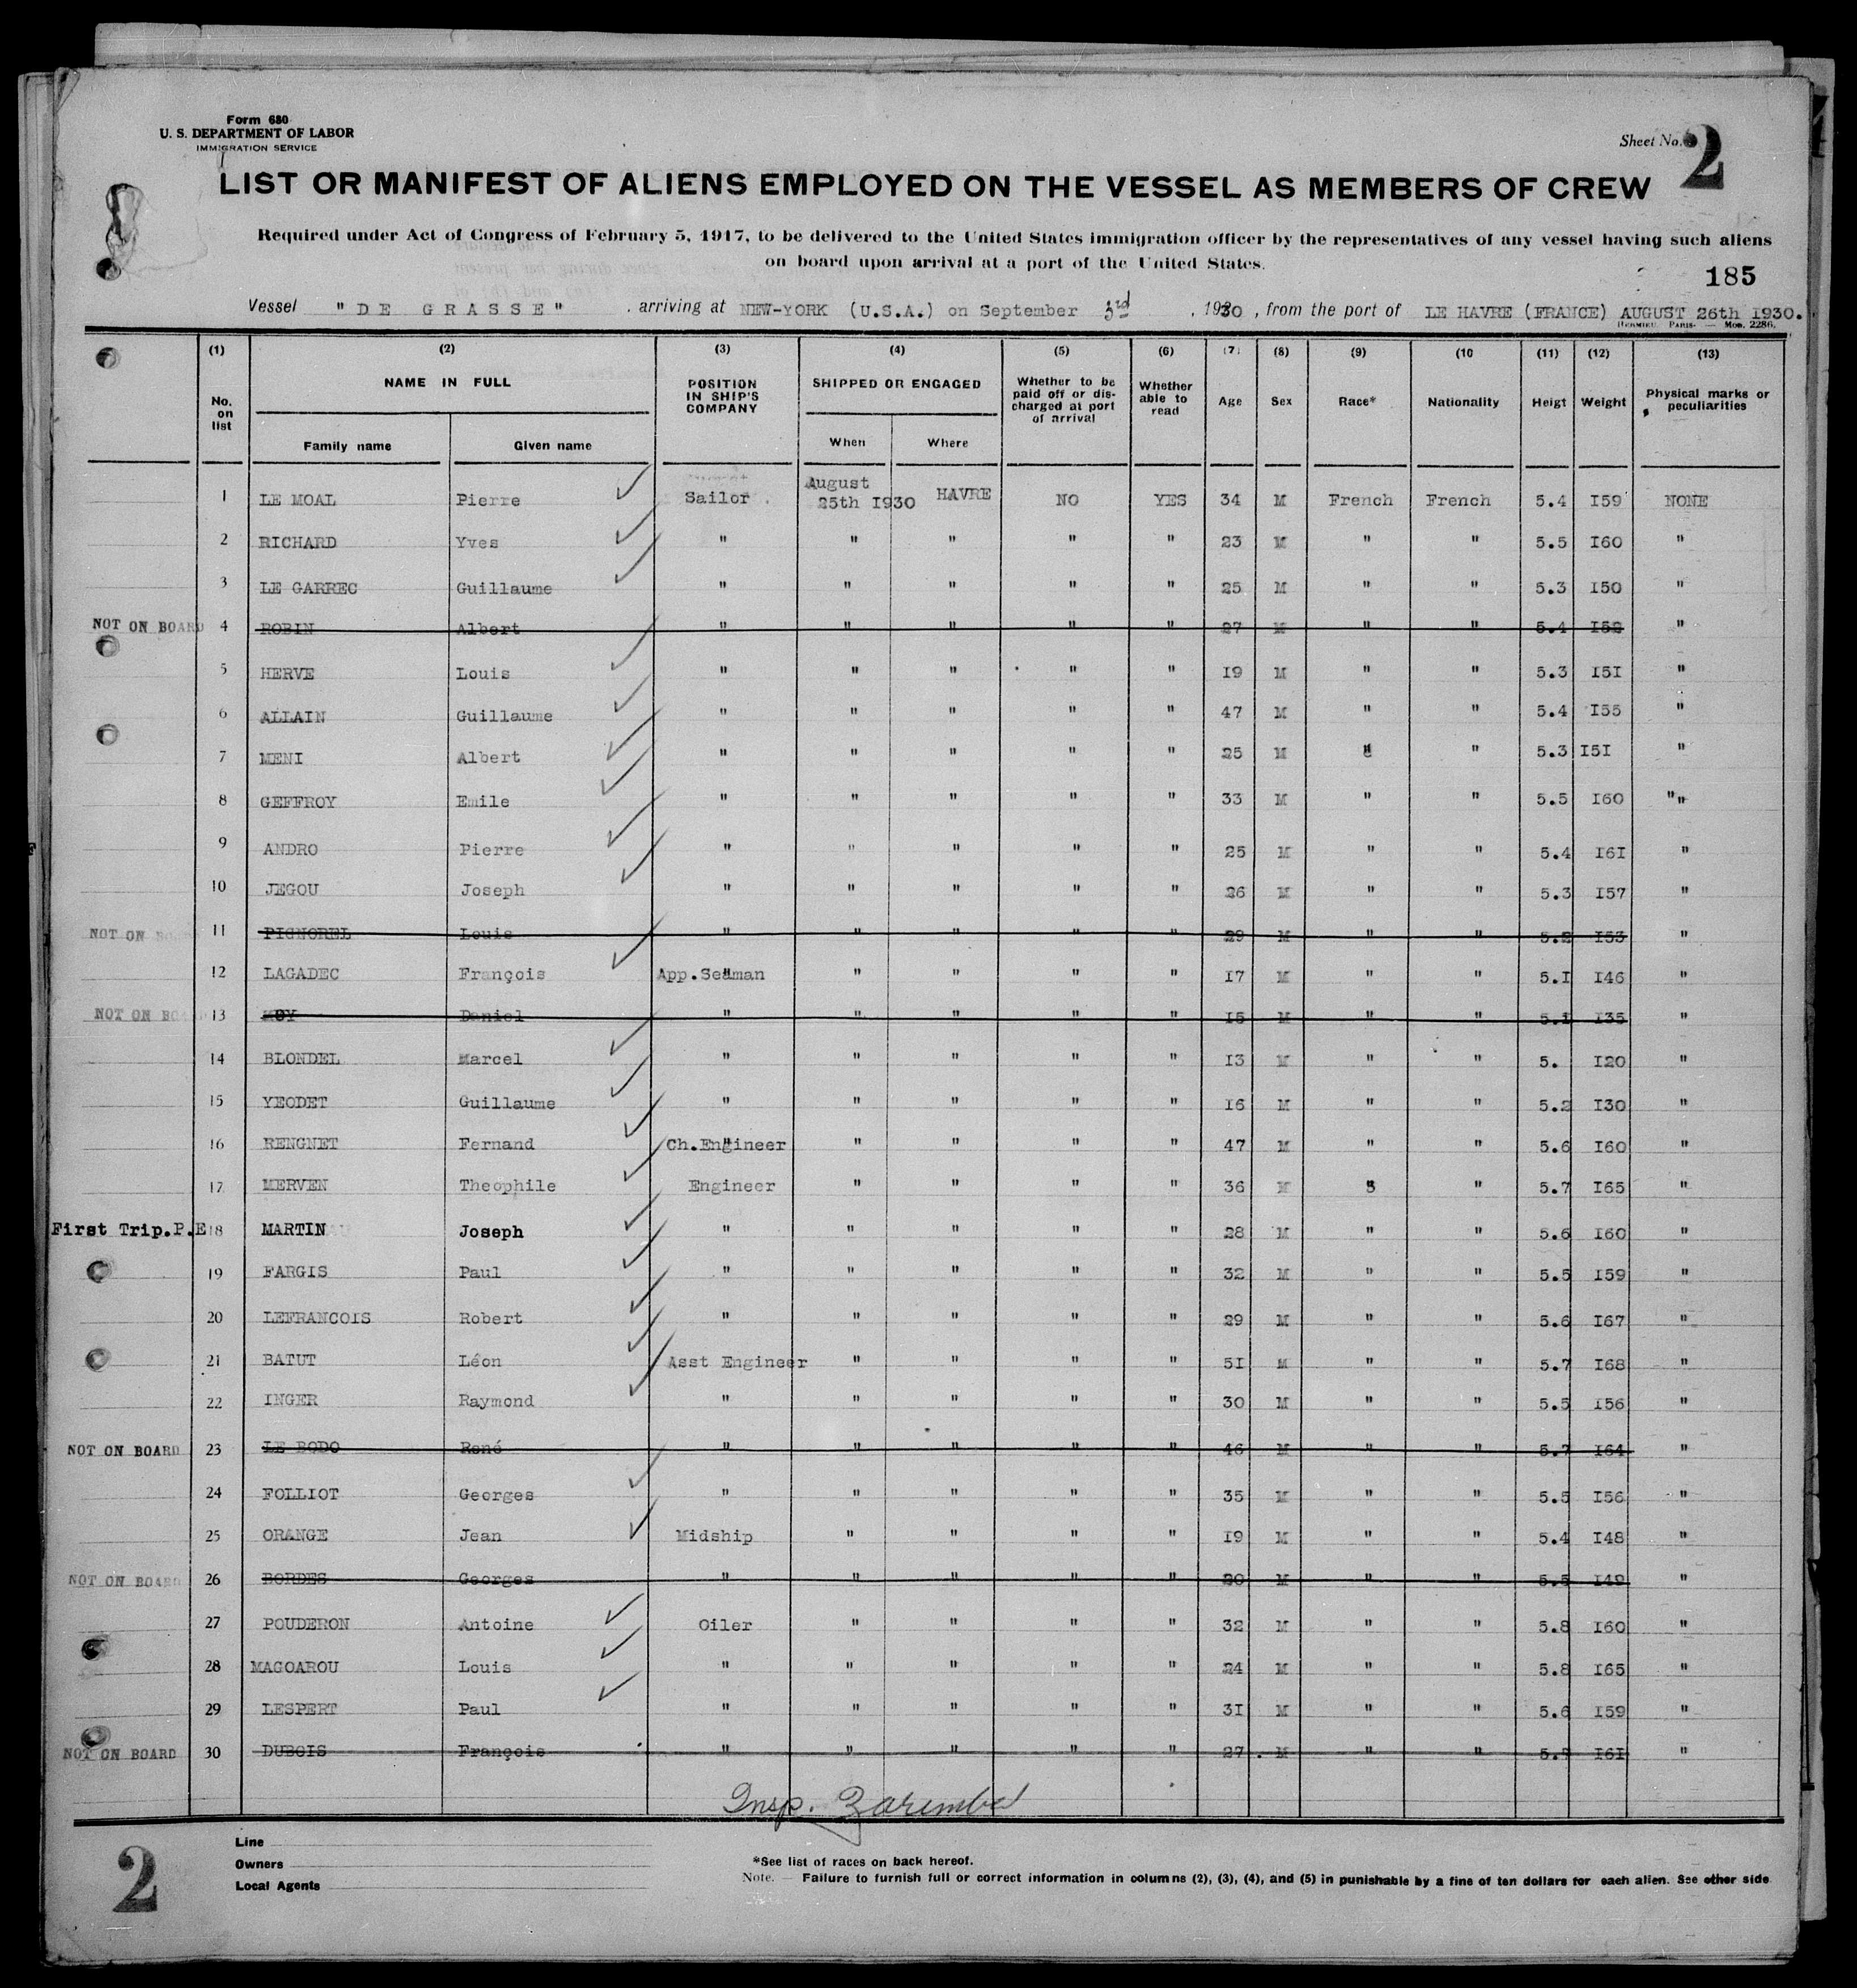 Form 680
U. S. DEPARTMENT OF LABOR
IMMIGRATION SERVICE
Sheet No. 2
LIST OR MANIFEST OF ALIENS EMPLOYED ON THE VESSEL AS MEMBERS OF CREW
Required under Act of Congress of February 5, 1917, to be delivered to the United States immigration officer by the representatives of any vessel having such aliens
on board upon arrival at a port of the United States.
185
Vessel "DE GRASSE" , arriving at NEW-YORK (U.S.A.) on September 3rd , 1930 , from the port of LE HAVRE (FRANCE) AUGUST 26th 1930.
PARIS. — Mod. 2286.
(1) (2) (3) (4) (5) (6) (7) (8) (9) (10 (11) (12) (13)
No. on list NAME IN FULL Family name Given name POSITION IN SHIP'S COMPANY SHIPPED OR ENGAGED When Where Whether to be paid off or discharged at port of arrival Whether able to read Age Sex Race* Nationality Heigt Weight Physical marks or peculiarities
1 LE MOAL Pierre Sailor August 25th I930 HAVRE NO YES 34 M French French 5.4 I59 NONE
2 RICHARD Yves " " " " " 23 M " " 5.5 I60 "
3 LE GARREC Guillaume " " " " " 25 M " " 5.3 I50 "
NOT ON BOARD 4 ROBIN Albert " " " " " 27 M " " 5.4 I52 "
5 HERVE Louis " " " " " I9 M " " 5.3 I5I "
6 ALLAIN Guillaume " " " " " 47 M " " 5.4 I55 "
7 MENI Albert " " " " " 25 M " " 5.3 I5I "
8 GEFFROY Emile " " " " " 33 M " " 5.5 I60 ""
9 ANDRO Pierre " " " " " 25 M " " 5.4 I6I "
10 JEGOU Joseph " " " " " 26 M " " 5.3 I57 "
NOT ON BOARD 11 PIGNOREL Louis " " " " " 29 M " " 5.2 I53 "
12 LAGADEC François App.Seaman " " " " I7 M " " 5.I I46 "
NOT ON BOARD 13 Daniel " " " " " I5 M " " 5.I I35 "
14 BLONDEL Marcel " " " " " I3 M " " 5. I20 "
15 YEODET Guillaume " " " " " I6 M " " 5.2 I30 "
16 RENGNET Fernand Ch.Engineer " " " " 47 M " " 5.6 I60 "
17 MERVEN Theophile Engineer " " " " 36 M " " 5.7 I65 "
First Trip.P.E 18 MARTIN Joseph " " " " " 28 M " " 5.6 I60 "
19 FARGIS Paul " " " " " 32 M " " 5.5 I59 "
20 LEFRANCOIS Robert " " " " " 29 M " " 5.6 I67 "
21 BATUT Léon Asst Engineer " " " " 5I M " " 5.7 I68 "
22 INGER Raymond " " " " " 30 M " " 5.5 I56 "
NOT ON BOARD 23 LE BODO René " " " " " 46 M " " 5.7 I64 "
24 FOLLIOT Georges " " " " " 35 M " " 5.5 I56 "
25 ORANGE Jean Midship " " " " I9 M " " 5.4 I48 "
NOT ON BOARD 26 BORDES Georges " " " " " 20 M " " 5.5 I49 "
27 POUDERON Antoine Oiler " " " " 32 M " " 5.8 I60 "
28 MAGOAROU Louis " " " " " 24 M " " 5.8 I65 "
29 LESPERT Paul " " " " " 3I M " " 5.6 I59 "
NOT ON BOARD 30 DUBOIS François " " " " " 27 M " " I6I "
Insp. Zaremba
2
Line
Owners
Local Agents
*See list of races on back hereof.
Note. — Failure to furnish full or correct information in columns (2), (3), (4), and (5) in punishable by a fine of ten dollars for each alien. See other side